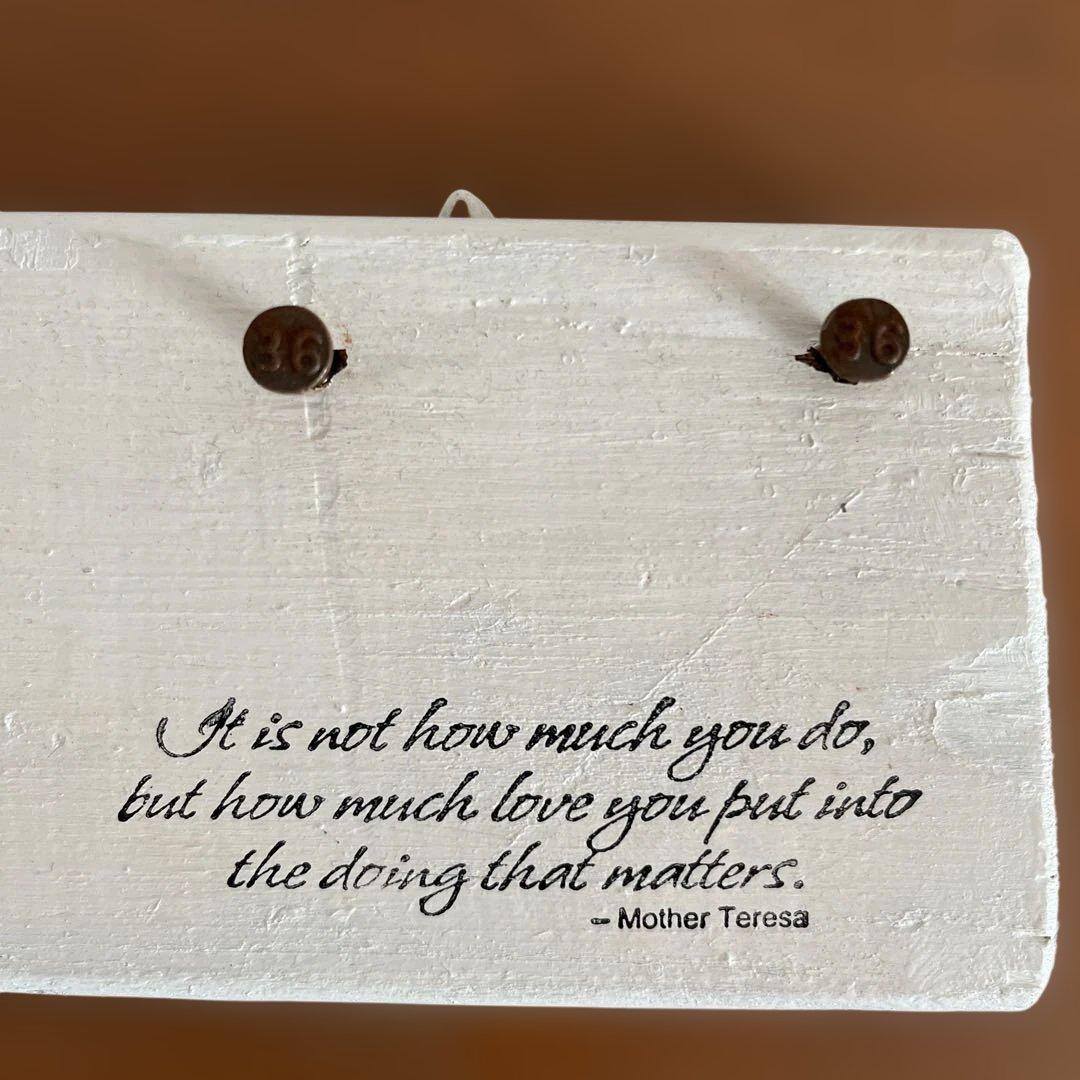 36 36
It is not how much you do,
but how much love you put into
the doing that matters.
– Mother Teresa